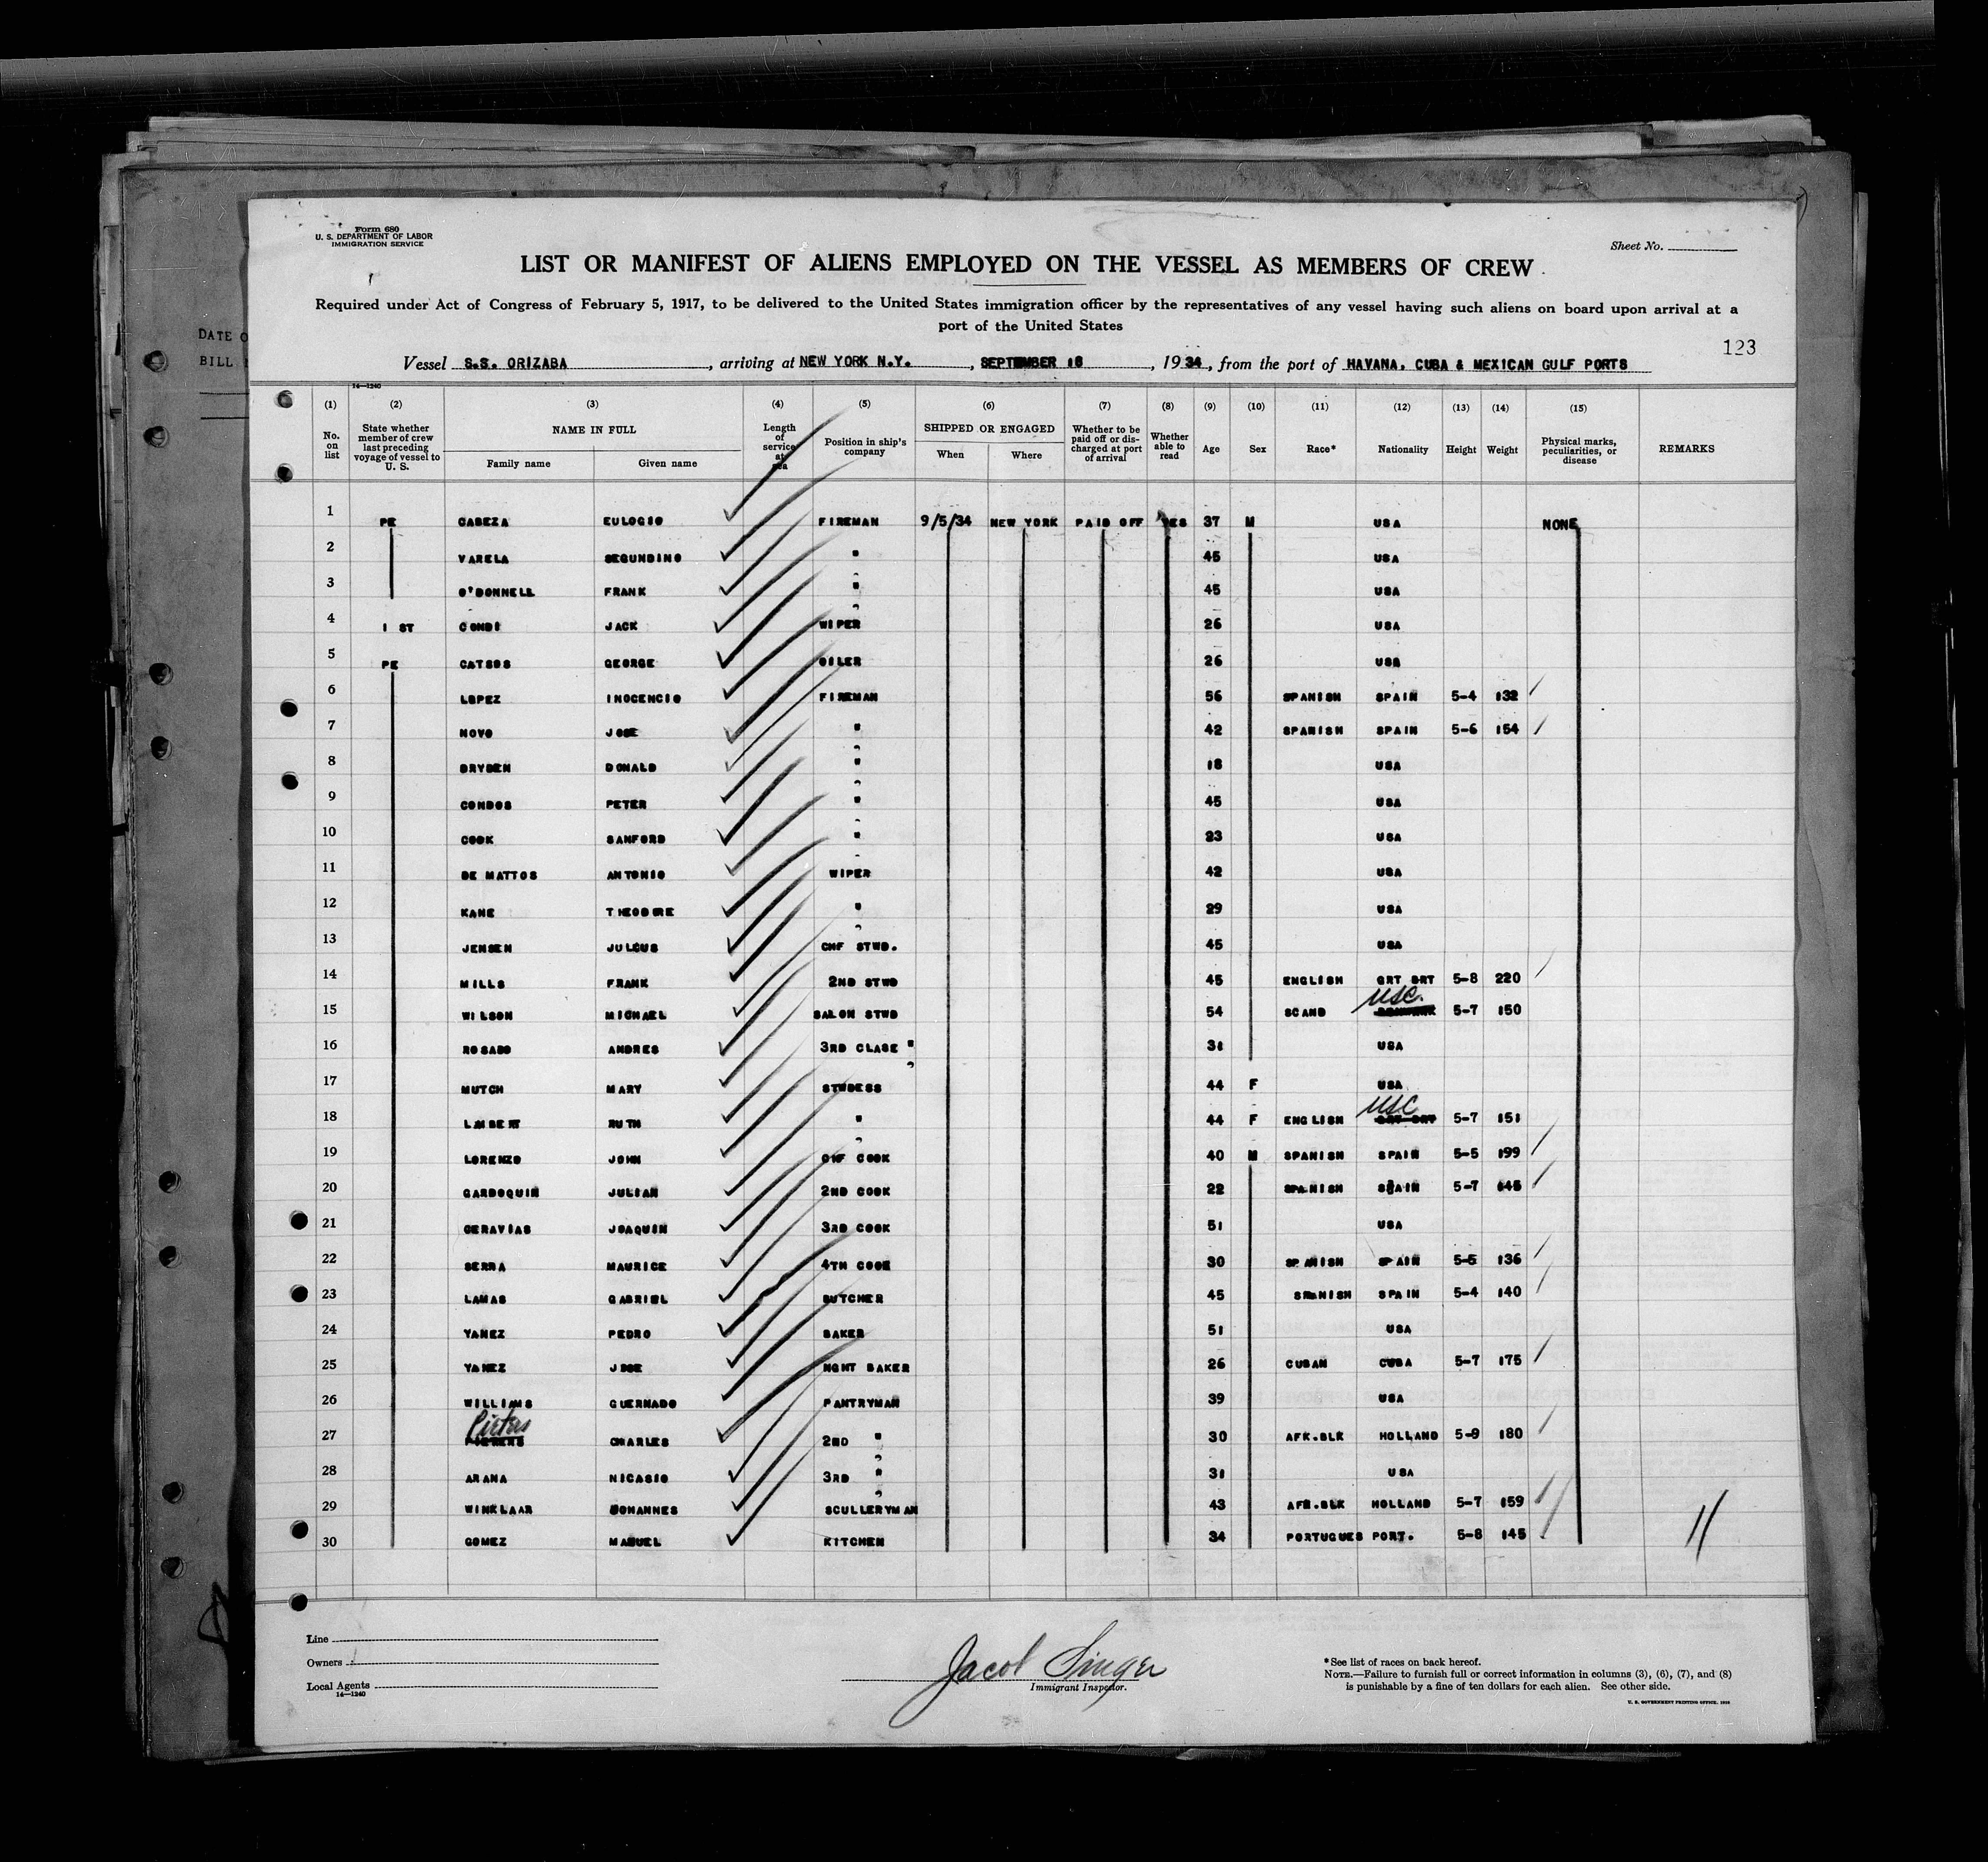 Form 680
U. S. DEPARTMENT OF LABOR
IMMIGRATION SERVICE
Sheet No.
LIST OR MANIFEST OF ALIENS EMPLOYED ON THE VESSEL AS MEMBERS OF CREW
Required under Act of Congress of February 5, 1917, to be delivered to the United States immigration officer by the representatives of any vessel having such aliens on board upon arrival at a
port of the United States
DATE O
BILL
123
Vessel S.S. ORIZABA, arriving at NEW YORK N.Y., SEPTEMBER 18, 1934, from the port of HAVANA, CUBA & MEXICAN GULF PORTS
14—1240
(1) (2) (3) (4) (5) (6) (7) (8) (9) (10) (11) (12) (13) (14) (15)
No. on list State whether member of crew last preceding voyage of vessel to U. S. NAME IN FULL Family name Given name Length of service at sea Position in ship's company SHIPPED OR ENGAGED When Where Whether to be paid off or discharged at port of arrival Whether able to read Age Sex Race* Nationality Height Weight Physical marks, peculiarities, or disease REMARKS
1 PE CABEZA EULOGIO FIREMAN 9/5/34 NEW YORK PAID OFF YES 37 M USA NONE
2 VARELA SEGUNDINO " 45 USA
3 O'DONNELL FRANK " 45 USA
4 1 ST CONDI JACK WIPER 26 USA
5 PE CATSOS GEORGE OILER 26 USA
6 LOPEZ INOCENCIO FIREMAN 56 SPANISH SPAIN 5-4 132
7 NOVO JOSE " 42 SPANISH SPAIN 5-6 154
8 DRYDEN DONALD " 18 USA
9 CONDOS PETER " 45 USA
10 COOK SANFORD " 23 USA
11 DE MATTOS ANTONIO WIPER 42 USA
12 KANE THEODORE " 29 USA
13 JENSEN JULIUS CHF STWD. 45 USA
14 MILLS FRANK 2ND STWD 45 ENGLISH GRT BRT 5-8 220
15 WILSON MICHAEL SALON STWD 54 SCAND USC. 5-7 150
16 ROSADO ANDRES 3RD CLASE " 31 USA
17 MUTCH MARY STWDESS 44 F USA
18 LAMBERT RUTH " 44 F ENGLISH USC GRT BRT 5-7 151
19 LORENZO JOHN CHF COOK 40 M SPANISH SPAIN 5-5 199
20 GARDOQUIN JULIAN 2ND COOK 22 SPANISH SPAIN 5-7 145
21 CERAVIAS JOAQUIN 3RD COOK 51 USA
22 SERRA MAURICE 4TH COOK 30 SPANISH SPAIN 5-5 136
23 LAMAS GABRIEL BUTCHER 45 SPANISH SPAIN 5-4 140
24 YANEZ PEDRO BAKER 51 USA
25 YANEZ JOSE NGHT BAKER 26 CUBAN CUBA 5-7 175
26 WILLIAMS GUERNADO PANTRYMAN 39 USA
27 Pieters CHARLES 2ND " 30 AFK.BLK HOLLAND 5-9 180
28 ARANA NICASIO 3RD " 31 USA
29 WINKLAAR JOHANNES SCULLERYMAN 43 AFR.BLK HOLLAND 5-7 159
30 GOMEZ MANUEL KITCHEN 34 PORTUGUES PORT. 5-8 145
11
Line
Owners
Local Agents
14—1240
Jacob Singer
Immigrant Inspector.
*See list of races on back hereof.
NOTE.—Failure to furnish full or correct information in columns (3), (6), (7), and (8)
is punishable by a fine of ten dollars for each alien. See other side.
U. S. GOVERNMENT PRINTING OFFICE